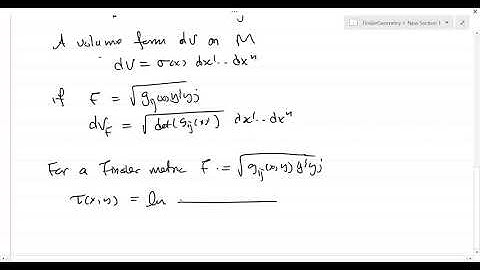 FinslerGeometry > New Section 1
A volume form dV on M
dV = σ(x) dx¹...dxⁿ
if F = √(g_ij(x)yⁱyʲ)
dV_F = √(det(g_ij(x))) dx¹...dxⁿ
For a Finsler metric F := √(g_ij(x,y)yⁱyʲ)
τ(x,y) = ln ―――――